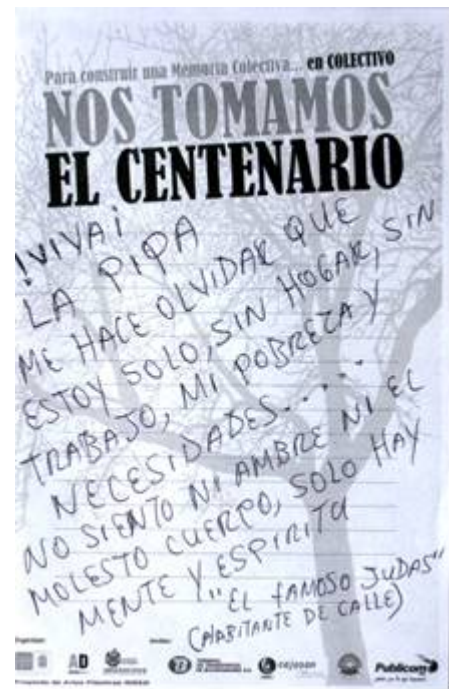 Para construir una Memoria Colectiva... en COLECTIVO
NOS TOMAMOS
EL CENTENARIO
¡VIVA¡
LA PIPA
ME HACE OLVIDAR QUE
ESTOY SOLO, SIN HOGAR, SIN
TRABAJO, MI POBREZA Y
NECESIDADES.....
NO SIENTO NI AMBRE NI EL
MOLESTO CUERPO, SOLO HAY
MENTE Y ESPIRITU
"EL fAMOSO JUDAS"
(HABITANTE DE CALLE)
AD
cajasan
Publicom